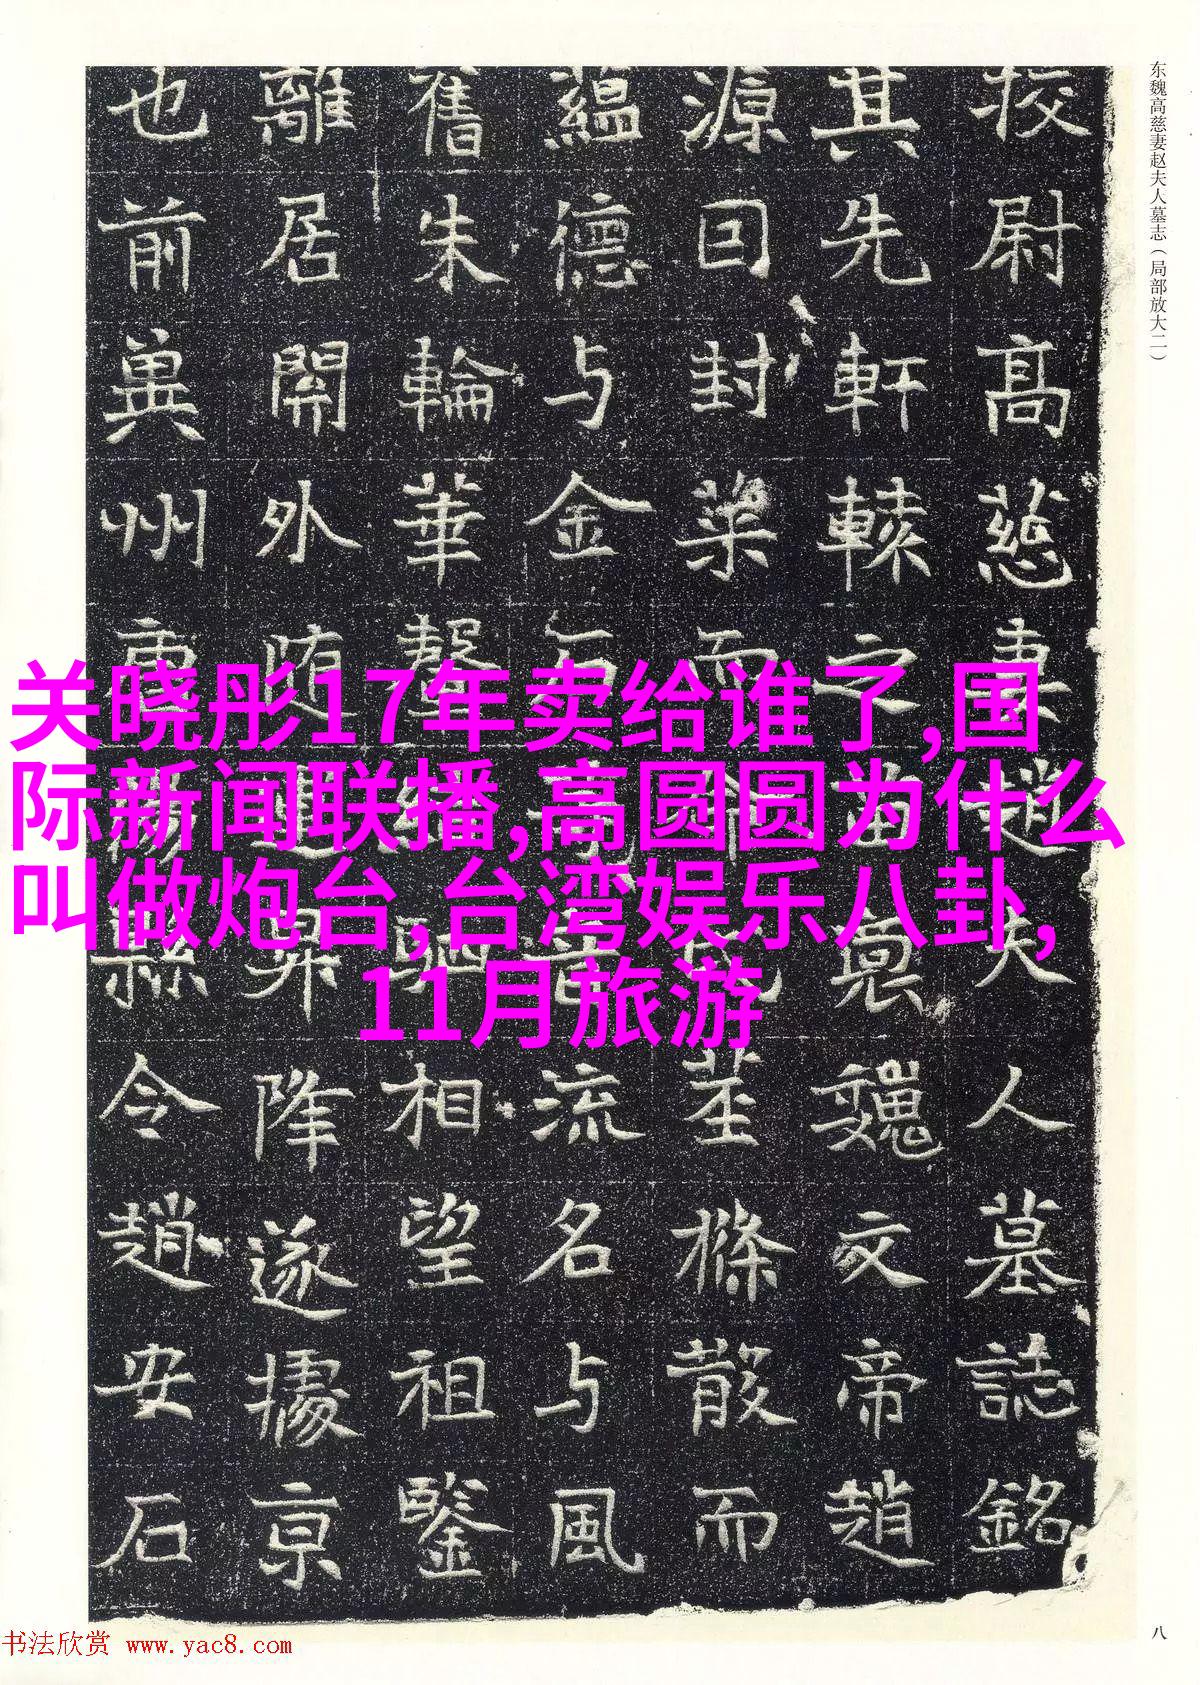 东魏高慈妻赵夫人墓志（局部放大二）
挍尉高慈妻趙夫人墓誌銘
其先軒轅之苗裔魏文帝趙
源囙封
蘊德与金石
流名与風
舊朱輪華
相望祖鑒
離居開外
降遂據京
也前兾州
縣令趙安石
关晓彤17年卖给谁了,国
际新闻联播,高圆圆为什么
叫做炮台,台湾娱乐八卦,
11月旅游
八
书法欣赏 www.yac8.com